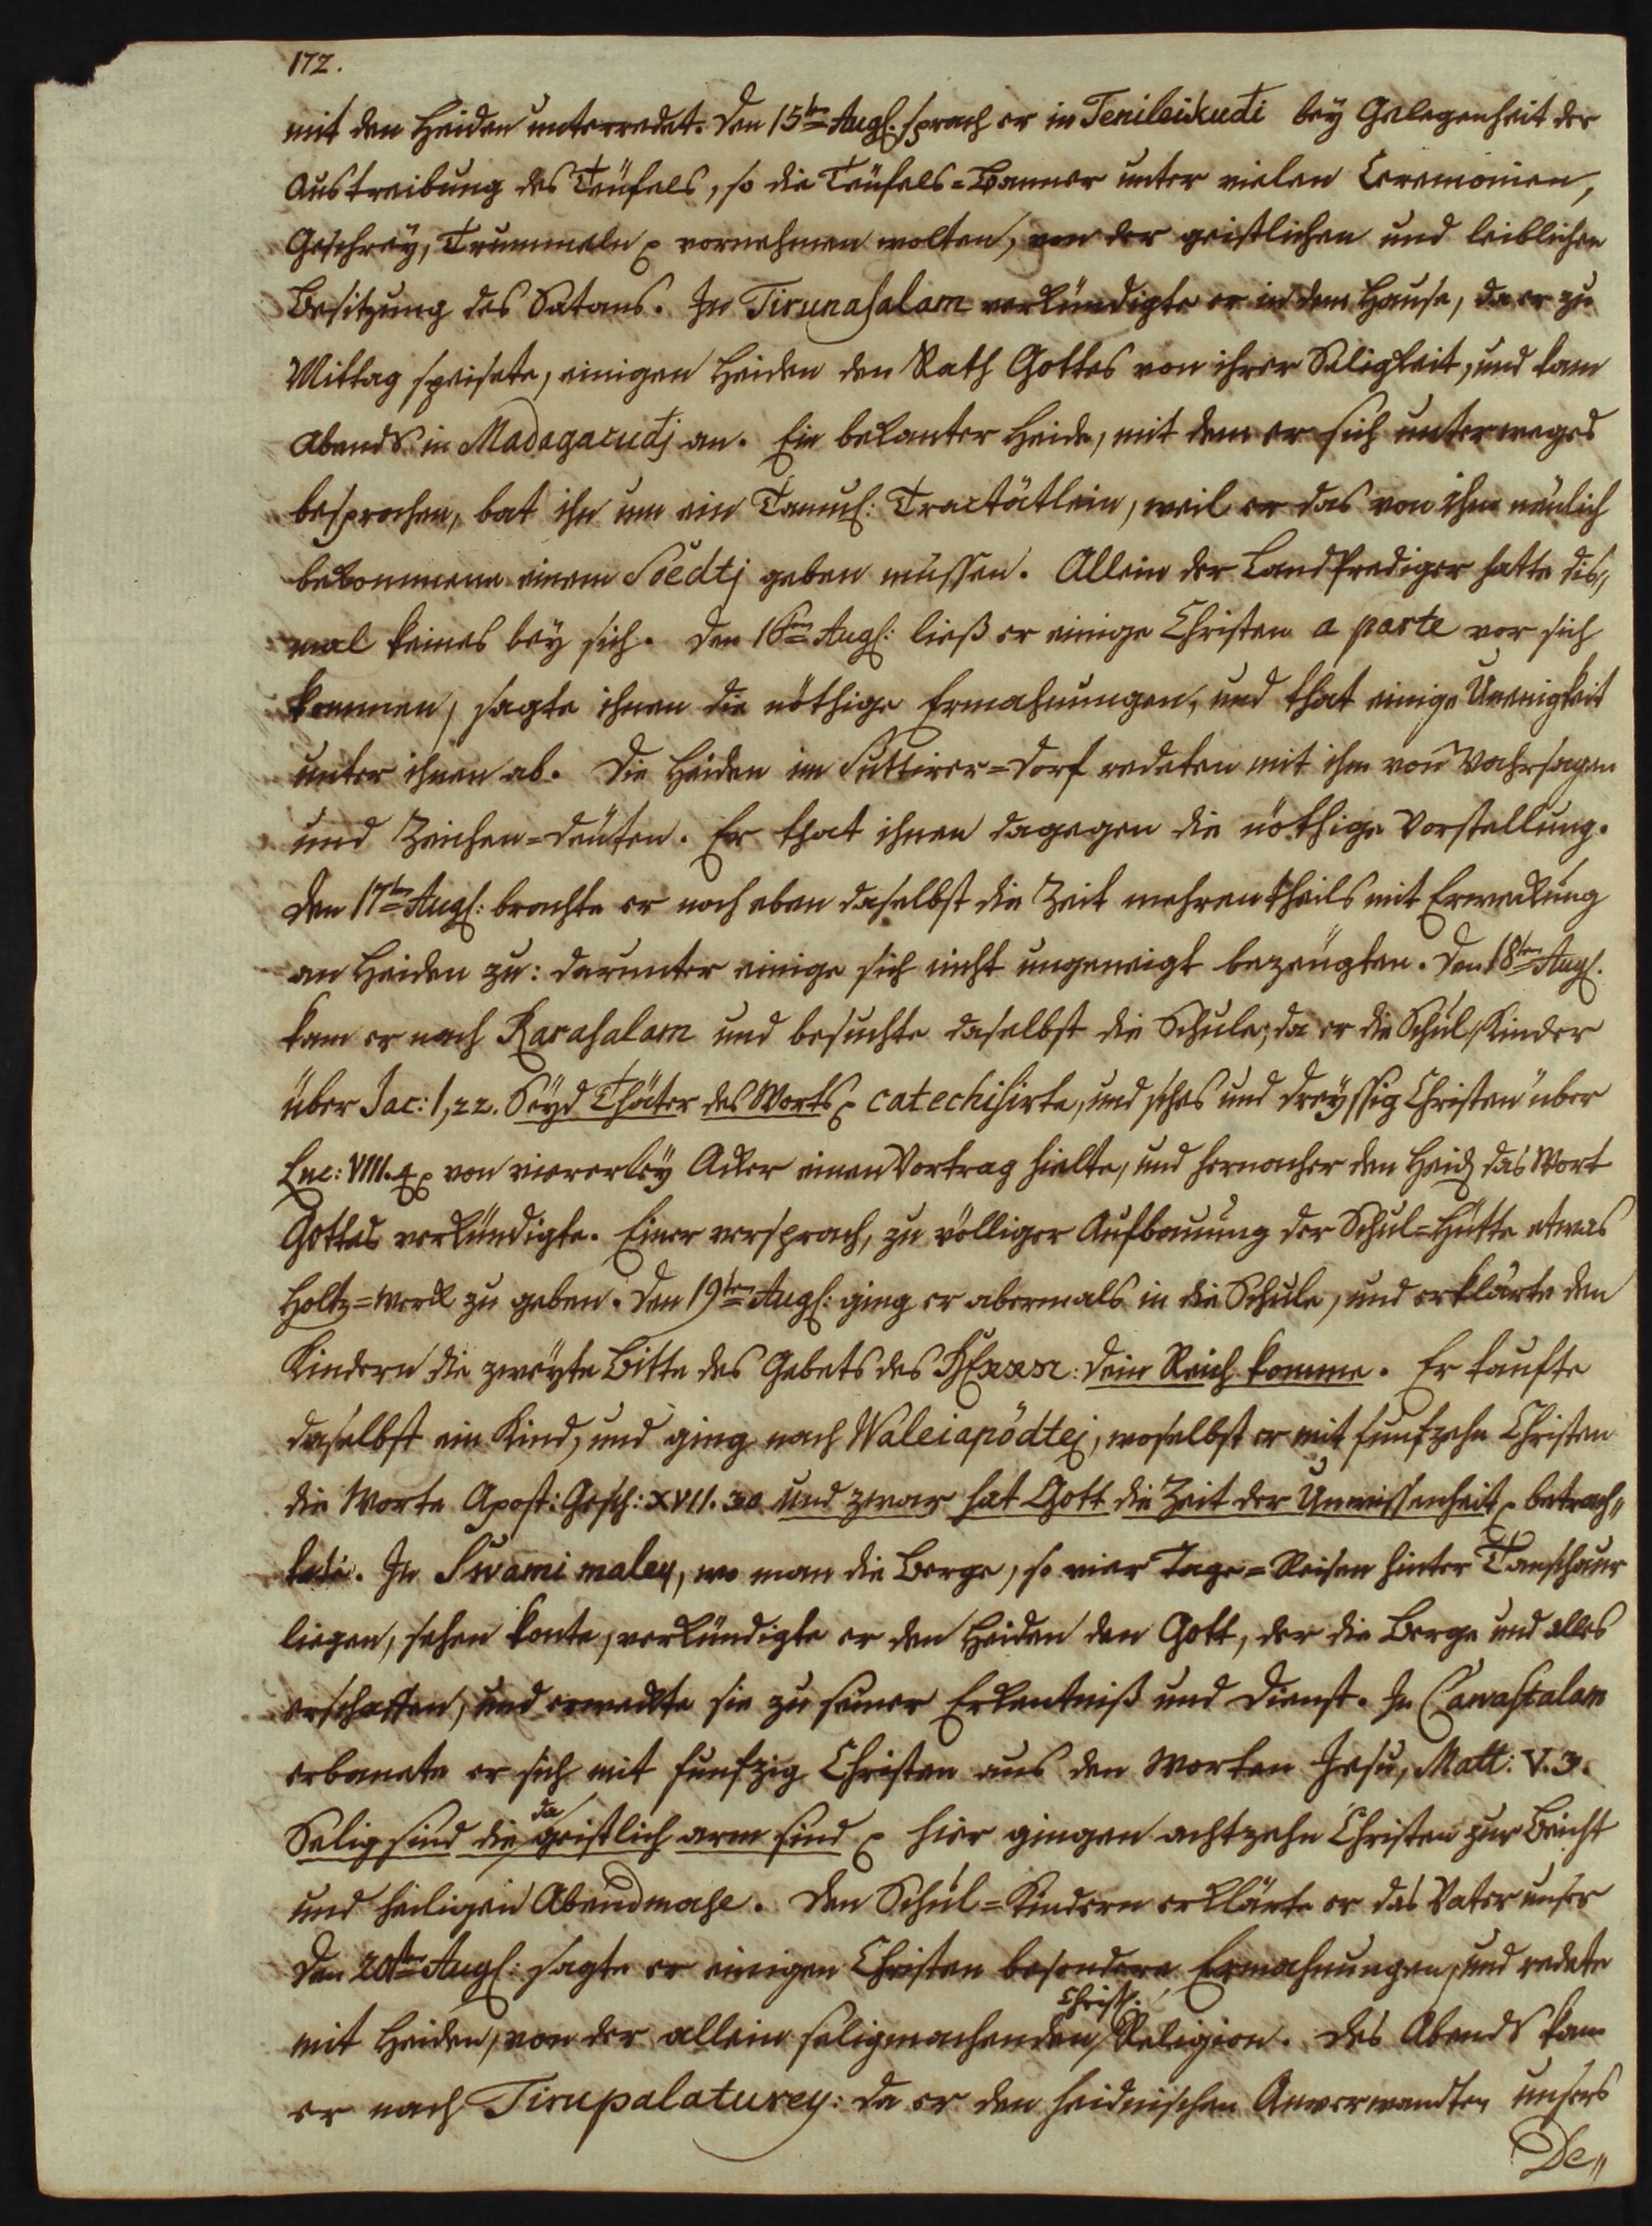 172.
mit den Heiden unterredet. Den 15ten Augs. sprach er in Tenileikudi bey Gelegenheit der
Austreibung des Teüfels, so die Teüfels=Banner unter vielen Ceremonien,
Geschrey, Trummeln p vornehmen wolten, von der geistlichen und leiblichen
Besitzung des Satans. In Tirunasalam verkündigte er in dem Hause, da er zu
Mittag speisete, einigen Heiden den Rath Gottes von ihrer Seligkeit, und kam
Abends in Madagacudj an. Ein bekanter Heide, mit dem er sich unterweges
besprochen, bat ihn um ein Tamul: Tractätlein, weil er das von ihm neulich
bekommene einem Soedtj geben müssen. Allein der LandPrediger hatte dis„
mal keines bey sich. Den 16ten Augs: ließ er einige Christen a parte vor sich
kommen, sagte ihnen die nöthige Ermahnungen, und that einige Uneinigkeit
unter ihnen ab. Die Heiden im Suttirer=Dorf redeten mit ihm von Wahrsagen
und Zeichen=deuten. Er that ihnen dagegen die nöthige Vorstellung.
Den 17ten Augs: brachte er noch eben daselbst die Zeit mehrentheils mit Erweckung
an Heiden zu: darunter einige sich nicht ungeneigt bezeugten. Den 18ten Augs.
kam er nach Karasalam und besuchte daselbst die Schule, da er die Schul-Kinder
über Jac: 1,22. Seyd Thäter des Worts p catechisirte, und sechs und dreyssig Christen über
Luc: VIII.4 p von viererley Acker einen Vortrag hielte, und hernacher den Heid das Wort
Gottes verkündigte. Einer versprach, zu völliger Aufbauung der Schul=Hütte etwas
Holtz=werck zu geben. Den 19ten Augs: ging er abermals in die Schule, und erklärte den
Kindern die zweyte Bitte des Gebets des HErrn: dein Reich komme. Er taufte
daselbst ein Kind, und ging nach Waleiapödtej, woselbst er mit funfzehn Christen
die Worte Apost: Gesch: XVII. 30 und zwar hat Gott die Zeit der Unwissenheit p betrach„
tete. In Swamimaley, wo man die Berge, so vier Tage=Reisen hinter Tanschaur
liegen, sehen konte, verkündigte er den Heiden den Gott, der die Berge und alles
erschaffen, und erweckte sie zu seiner Erkentniß und Dienst. In Cawastalam
erbauete er sich mit funfzig Christen aus den Worten Jesu, Matt: V. 3.
Selig sind die da geistlich arm sind p hier gingen achtzehn Christen zur Beicht
und heiligen Abendmahl. Den Schul=Kindern erklärte er das Vater unser
Den 20ten Augs: sagte er einigen Christen besondere Ermahnungen, und redete
mit Heiden, von der allein seligmachenden Christl. Religion. Des Abends kam
er nach Tirupalaturey: da er den heidnischen Anverwandten unsers
De„